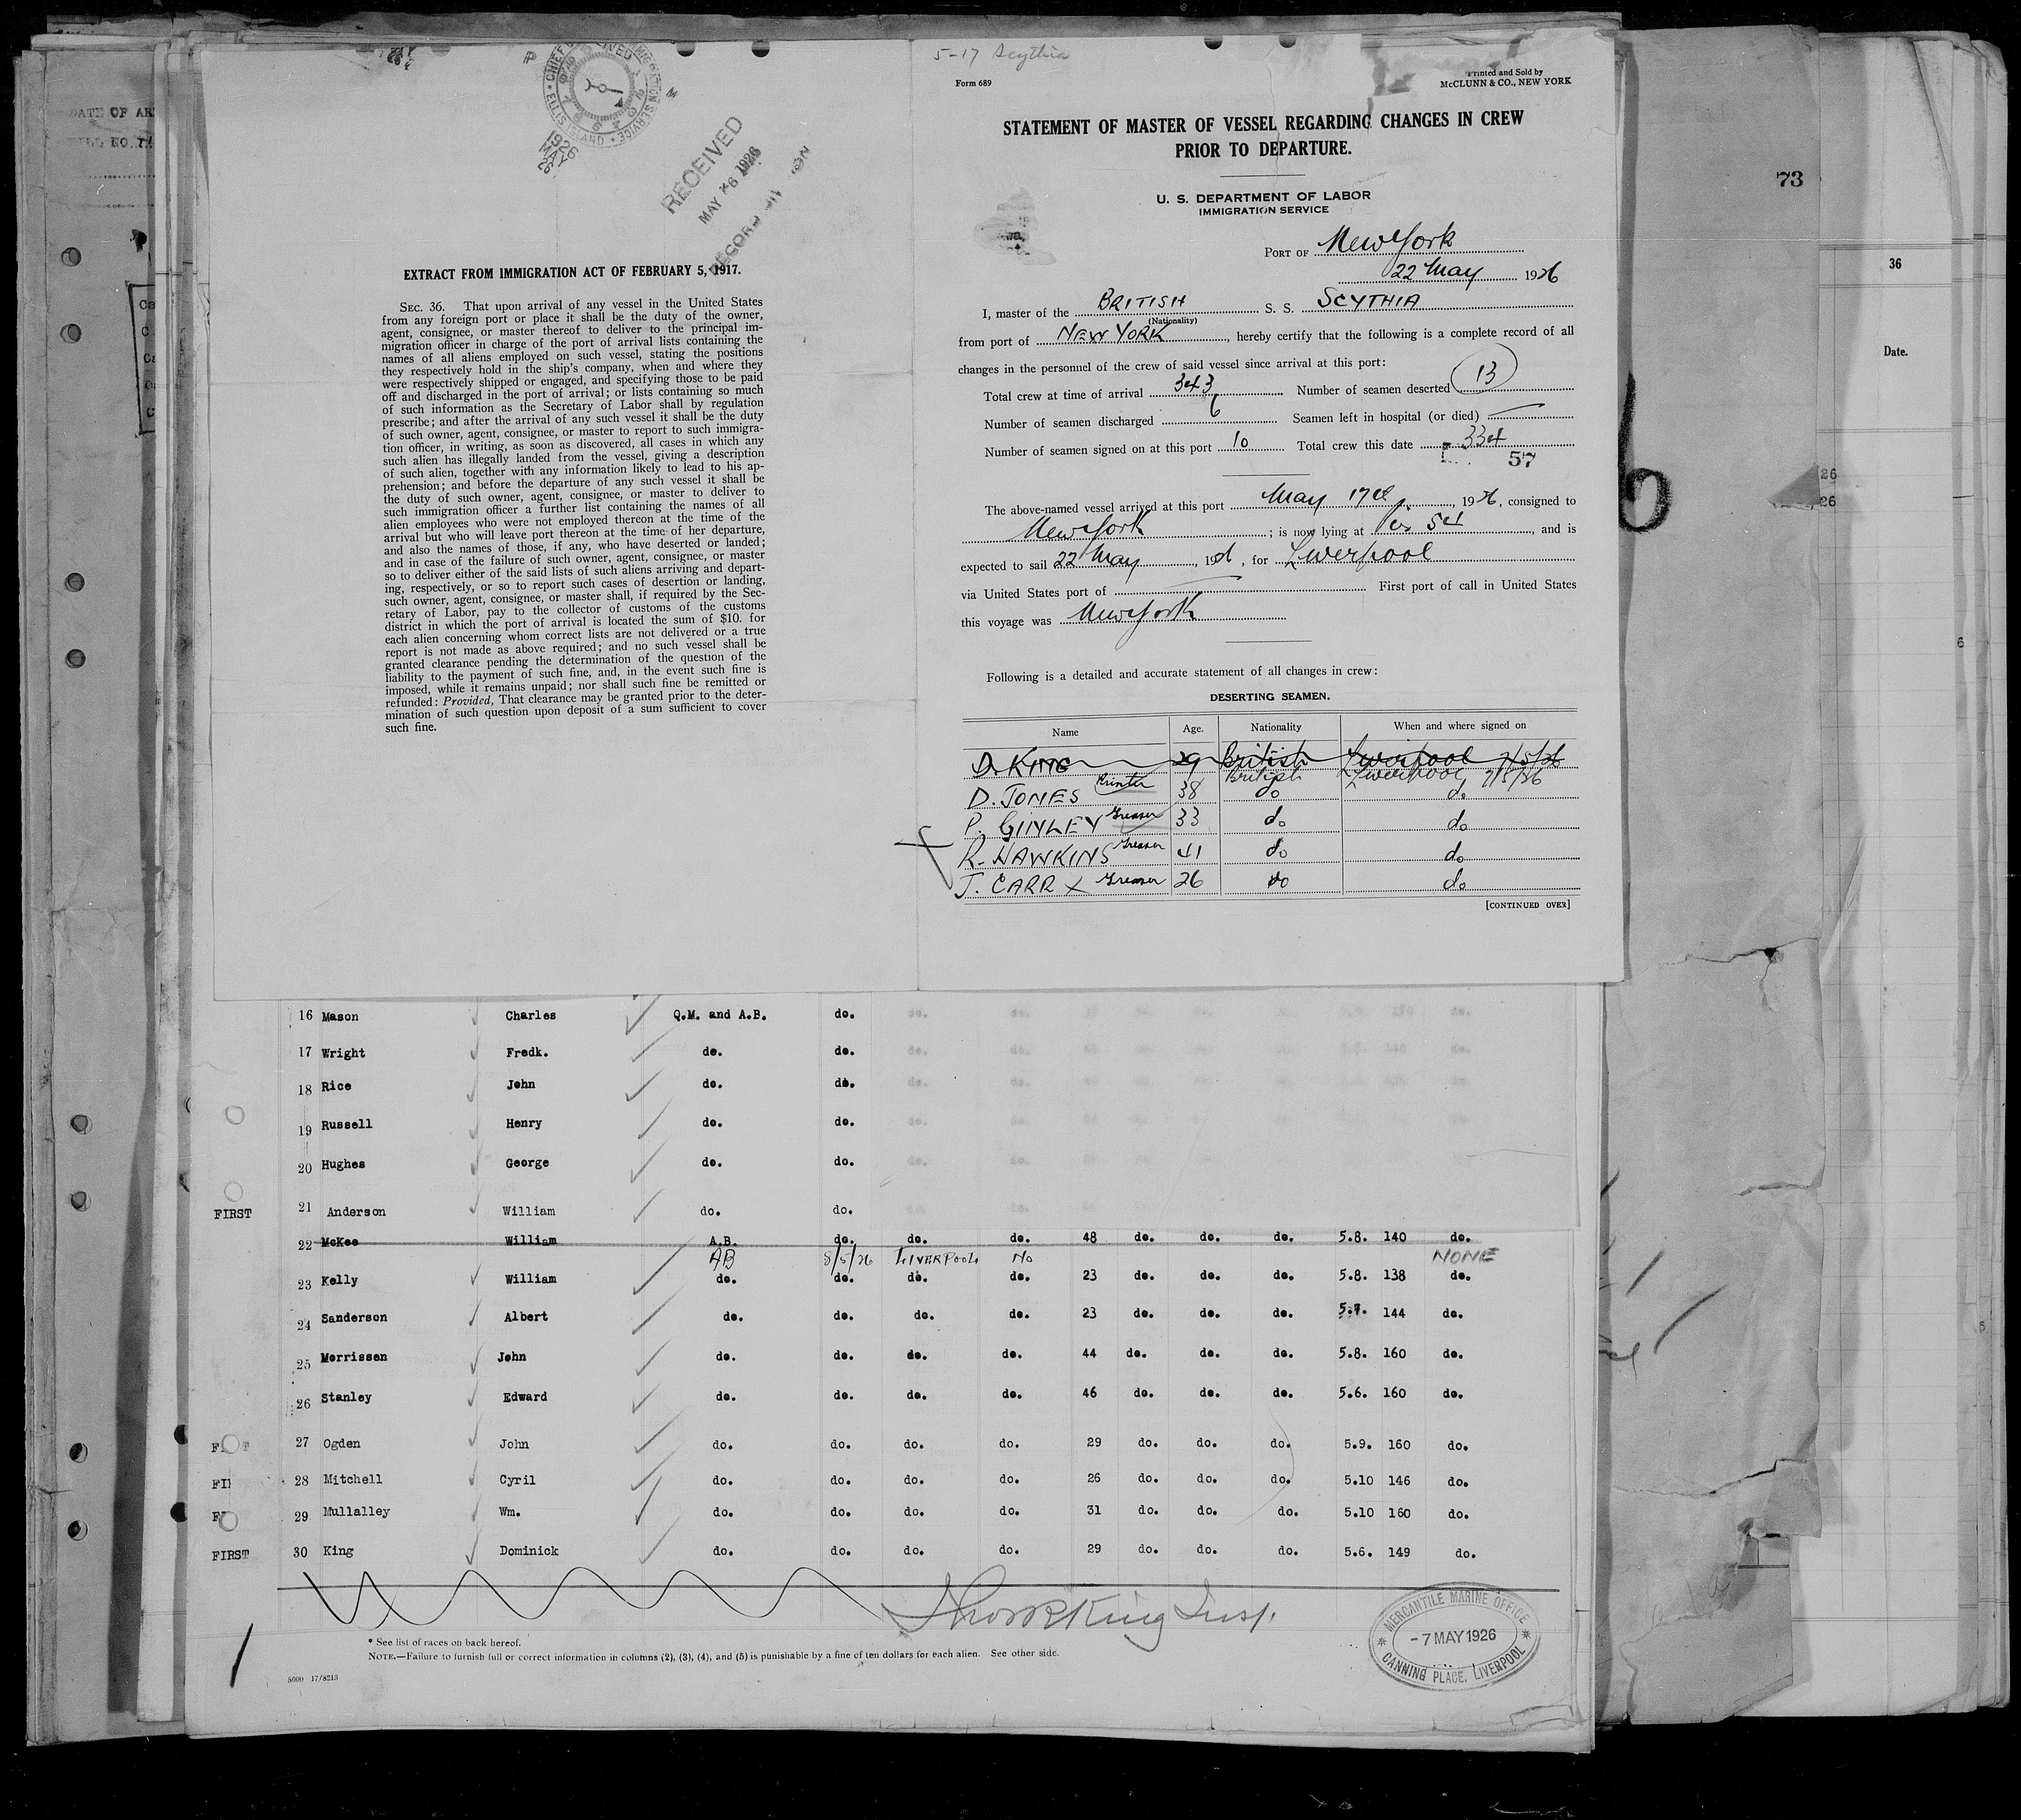 DATE OF AR
5-17 Scythia
Form 689
Printed and Sold by
McCLUNN & CO., NEW YORK
STATEMENT OF MASTER OF VESSEL REGARDING CHANGES IN CREW
PRIOR TO DEPARTURE.
U. S. DEPARTMENT OF LABOR
IMMIGRATION SERVICE
PORT OF New York
22 May 1926
I, master of the BRITISH S. S. SCYTHIA
(Nationality)
from port of NEW YORK, hereby certify that the following is a complete record of all
changes in the personnel of the crew of said vessel since arrival at this port:
Total crew at time of arrival 343 Number of seamen deserted 13
Number of seamen discharged 6 Seamen left in hospital (or died)
Number of seamen signed on at this port 10 Total crew this date 334
57
The above-named vessel arrived at this port May 17th, 1926, consigned to
New York; is now lying at Pier 54, and is
expected to sail 22 May, 196, for Liverpool
via United States port of First port of call in United States
this voyage was New York
Following is a detailed and accurate statement of all changes in crew:
DESERTING SEAMEN.
Name Age. Nationality When and where signed on
D. KING 29 British Liverpool 7/5/26
British Liverpool 7/5/26
D. JONES Printer 38 do do
P. GINLEY Greaser 33 do do
R. HAWKINS Greaser 41 do do
J. CARR x Greaser 26 do do
[CONTINUED OVER]
ELLIS ISLAND
1926
MAY
26
RECEIVED
MAY 26 1926
EXTRACT FROM IMMIGRATION ACT OF FEBRUARY 5, 1917.
SEC. 36. That upon arrival of any vessel in the United States
from any foreign port or place it shall be the duty of the owner,
agent, consignee, or master thereof to deliver to the principal im-
migration officer in charge of the port of arrival lists containing the
names of all aliens employed on such vessel, stating the positions
they respectively hold in the ship's company, when and where they
were respectively shipped or engaged, and specifying those to be paid
off and discharged in the port of arrival; or lists containing so much
of such information as the Secretary of Labor shall by regulation
prescribe; and after the arrival of any such vessel it shall be the duty
of such owner, agent, consignee, or master to report to such immigra-
tion officer, in writing, as soon as discovered, all cases in which any
such alien has illegally landed from the vessel, giving a description
of such alien, together with any information likely to lead to his ap-
prehension; and before the departure of any such vessel it shall be
the duty of such owner, agent, consignee, or master to deliver to
such immigration officer a further list containing the names of all
alien employees who were not employed thereon at the time of the
arrival but who will leave port thereon at the time of her departure,
and also the names of those, if any, who have deserted or landed;
and in case of the failure of such owner, agent, consignee, or master
so to deliver either of the said lists of such aliens arriving and depart-
ing, respectively, or so to report such cases of desertion or landing,
such owner, agent, consignee, or master shall, if required by the Sec-
retary of Labor, pay to the collector of customs of the customs
district in which the port of arrival is located the sum of $10. for
each alien concerning whom correct lists are not delivered or a true
report is not made as above required; and no such vessel shall be
granted clearance pending the determination of the question of the
liability to the payment of such fine, and, in the event such fine is
imposed, while it remains unpaid; nor shall such fine be remitted or
refunded: Provided, That clearance may be granted prior to the deter-
mination of such question upon deposit of a sum sufficient to cover
such fine.
73
36
Date.
26
26
6
5
16 Mason Charles Q.M. and A.B. do.
17 Wright Fredk. do. do.
18 Rice John do. do.
19 Russell Henry do. do.
20 Hughes George do. do.
FIRST 21 Anderson William do. do.
22 McKee William A.B. do. do. do. 48 do. do. do. 5.8. 140 do.
AB 8/5/26 LIVERPOOL No NONE
23 Kelly William do. do. do. do. 23 do. do. do. 5.8. 138 do.
24 Sanderson Albert do. do. do. do. 23 do. do. do. 5.7. 144 do.
25 Morrissen John do. do. do. do. 44 do. do. do. 5.8. 160 do.
26 Stanley Edward do. do. do. do. 46 do. do. do. 5.6. 160 do.
27 Ogden John do. do. do. do. 29 do. do. do. 5.9. 160 do.
28 Mitchell Cyril do. do. do. do. 26 do. do. do. 5.10 146 do.
29 Mullalley Wm. do. do. do. do. 31 do. do. do. 5.10 160 do.
FIRST 30 King Dominick do. do. do. do. 29 do. do. do. 5.6. 149 do.
King Insp.
MERCANTILE MARINE OFFICE
-7 MAY 1926
CANNING PLACE, LIVERPOOL
* See list of races on back hereof.
NOTE.—Failure to furnish full or correct information in columns (2), (3), (4), and (5) is punishable by a fine of ten dollars for each alien. See other side.
5000 17/8213